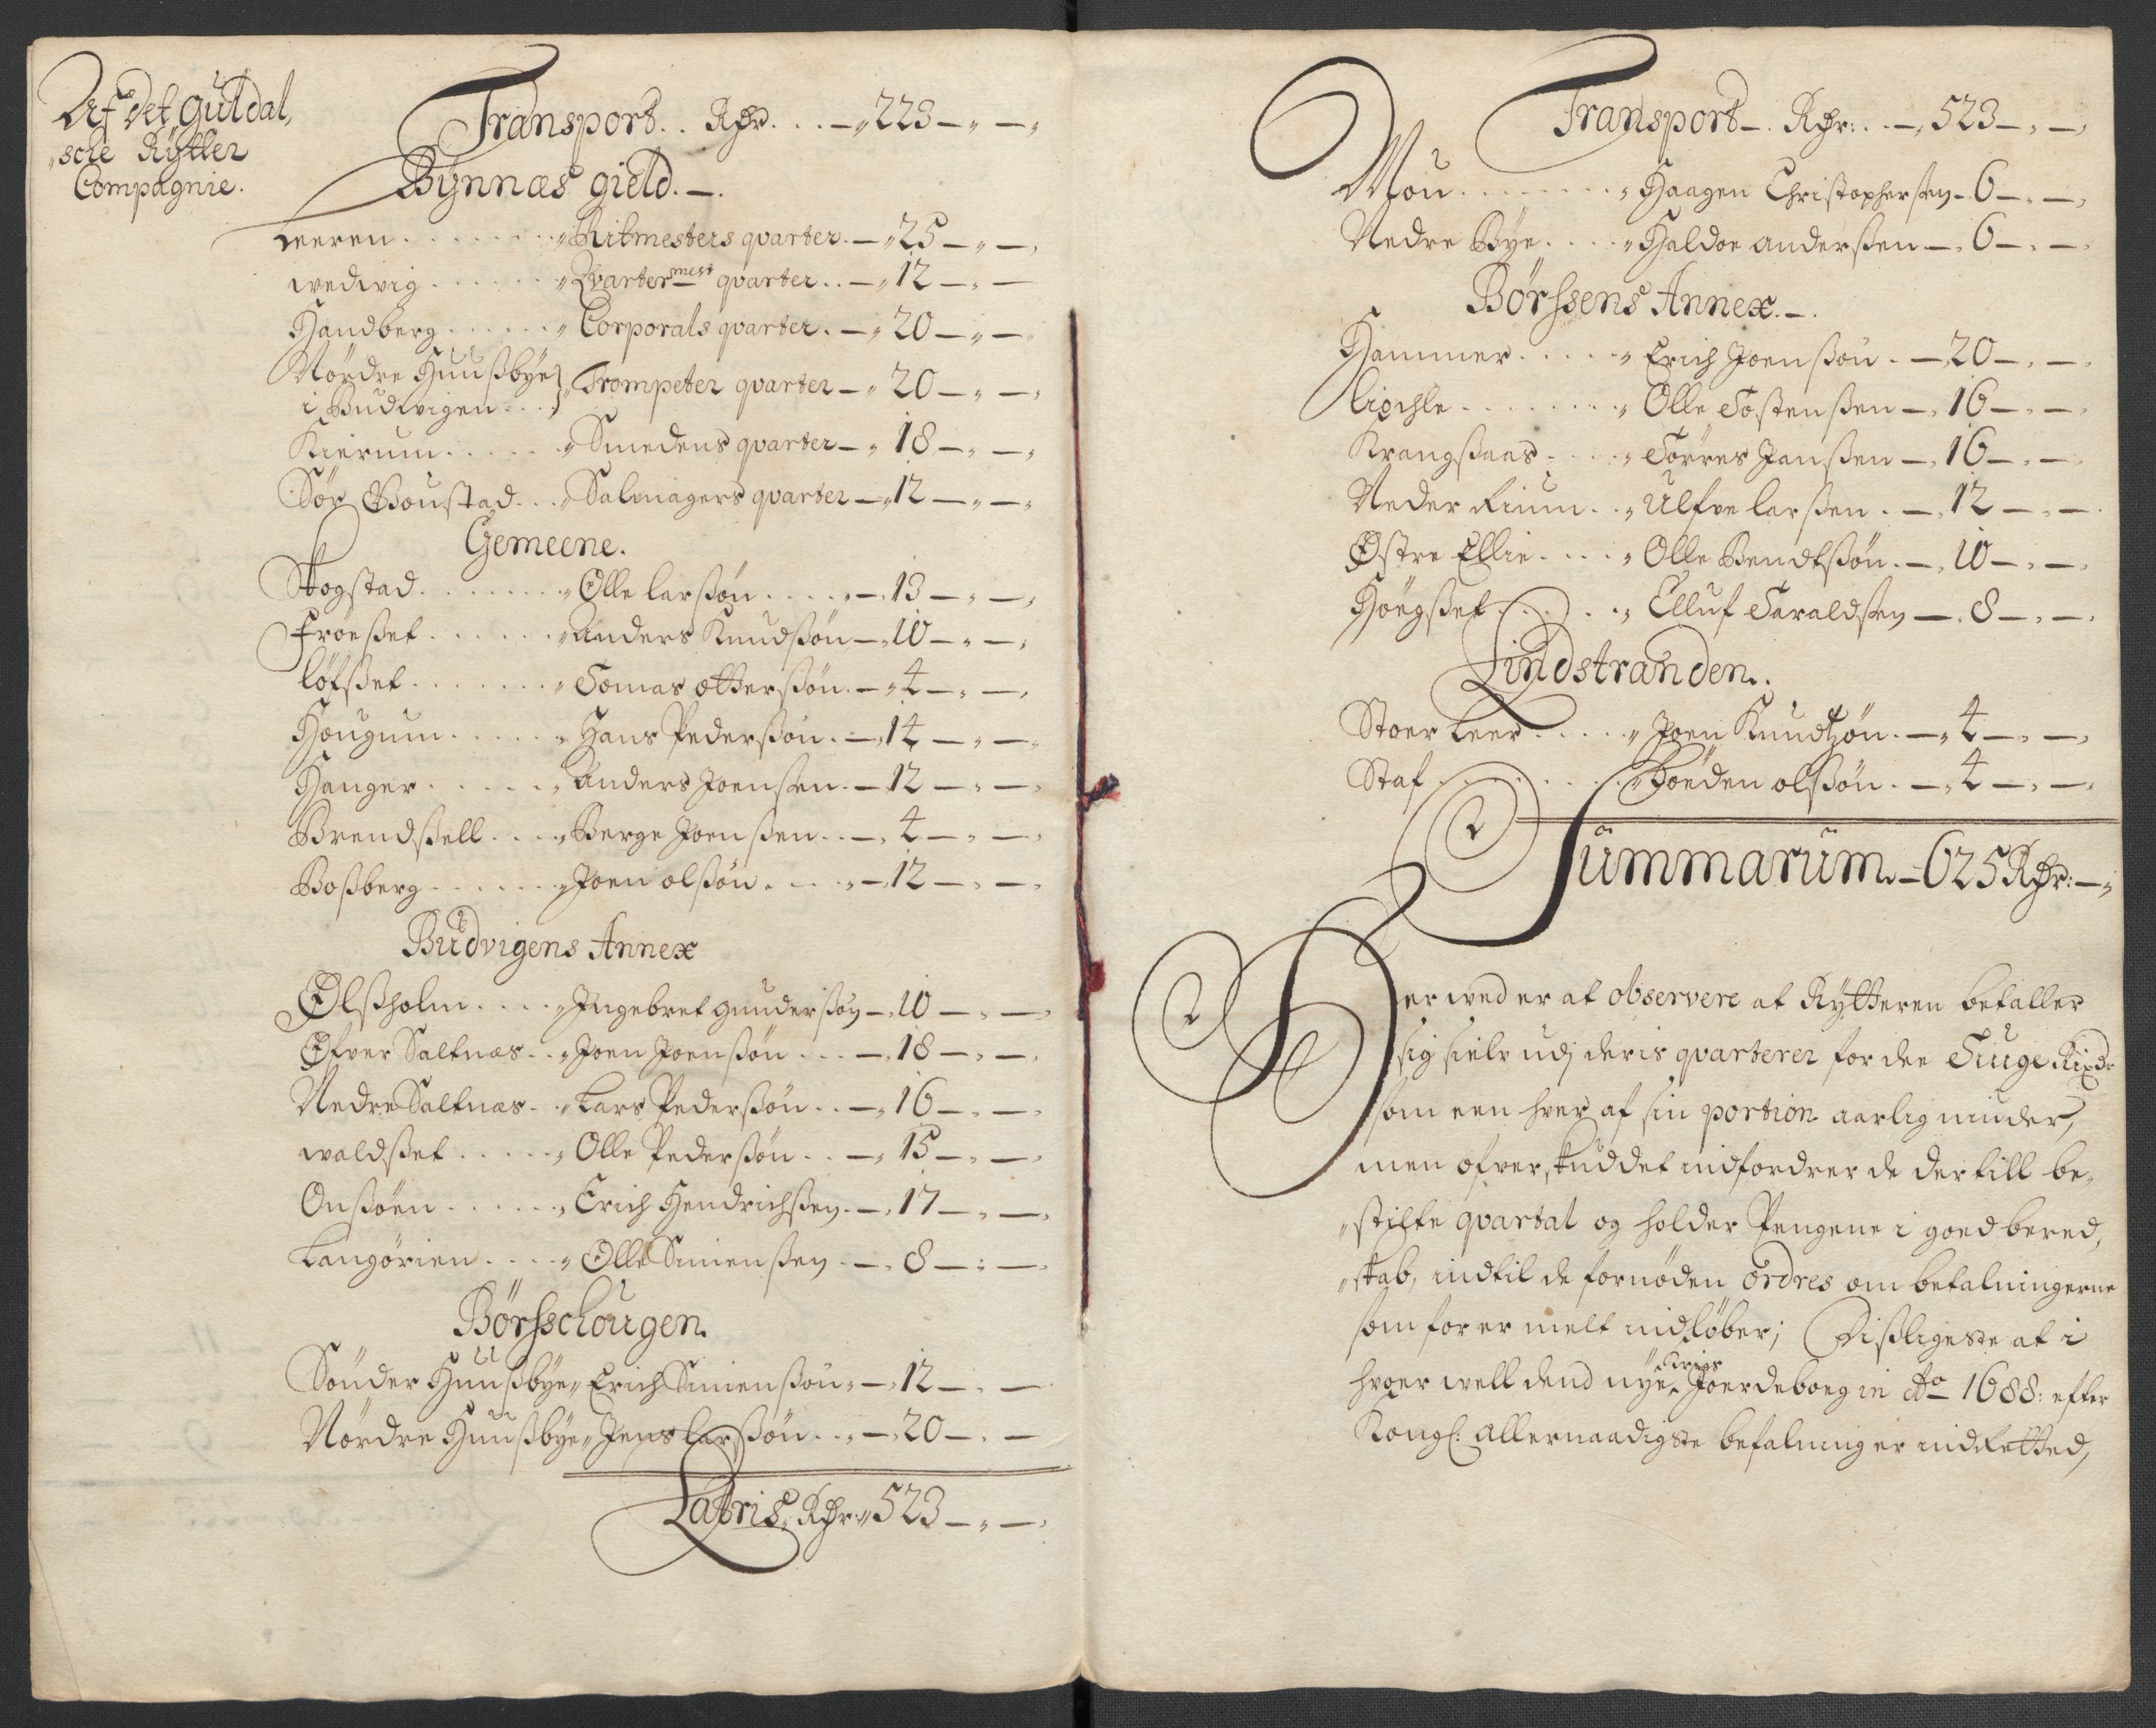 Af det Guldal,
"sche Rÿtter
Compagnie.
Transport. . Rdr. . . . —„ 223 —„—„
Bÿnnæs gield. —.
Leeren . . . . . . . . „ Ritmesters qvarter. —„ 25 —„—„
wedwig . . . . . . „ Qvartermest qvarter. . —„ 12 —„—
Handberg . . . . . . „ Corporals qvarter. —„ 20 —„—„
Nördre Huusbÿe
i Budwigen . . . } „ Trompeter qvarter —„ 20 —„—„
Kierum . . . . . „ Smedens qvarter —„ 18 —„—„
Sör Goustad . . . „ Salmagers qvarter —„ 12 —„—„
Gemeene.
Skogstad . . . . . . . „ Olle larßön . . . . . —„ 13 —„—„
Fröeßet . . . . . . „ Anders Knudßön —„ 10 —„—„
löfßet . . . . . . . „ Tomas otterßön . —„ 4 —„—„
Hougum . . . . . „ Hans Pederßön . —„ 14 —„—„
Hanger . . . . . „ Anders Joenßen . — 12 —„—„
Brendßell . . . . „ Berge Joenßen . . —„ 4 —„—„
Boßberg . . . . . . „ Joen olßön . . . . —„ 12 —„—„
Budvigens Annex
Ølßholm . . . . „ Ingebret gunderßøn —„ 10 —„—„
Øfver Saltnæs . . „ Joen Joenßön . . . —„ 18 —„—„
Nedre Saltnæs . . „ Lars Pederßön . . —„ 16 —„—„
waldßet . . . . . „ Olle Pederßön . . —„ 15 —„—„
Onßöen . . . . . . „ Erich Hendrichßen . —„ 17 —„—„
Langörien . . . . „ Olle Simenßen . —„ 8 —„—„
Börsschougen.
Sönder Huusbÿe „ Erich Simenßön . —„ 12 —„—
Nördre Huusbÿe „ Jens larßön . . . —„ 20 —„—
Lateris, Rdr „ 523 —„—„
Transport —. Rdr: . . —„ 523 —„—„
Mou . . . . . . . . „ Haagen Christophersen — 6 —„—„
Nedre Bÿe . . . . „ Haldoe anderßen —„ 6 —„—„
Börssens Annex. —.
Hammer . . . . . „ Erich Joenßön . — 20 —„—„
Viggen . . . . . . . „ Olle Tostenßen —„ 16 —„—„
Krangßaas . . . . „ Törres Janßen —„ 16 —„—„
Neder Rium . . „ Ulfve larßen . —„ 12 —„—„
Østre Ellie . . . . „ Olle Bendtßön . —„ 10 —„—„
Höÿgßet . . . . . „ Elluf Taraldßen —„ 8 —„—„
Lindstranden.
Stoer Leer . . . . . „ Joen Knudtzön . —„ 4 —„—„
Staf . . . . . . . . . „ Boÿden olßön . —„ 4 —„—„
Summarum. — 625 Rdr: —„
Herwed er at observere at Rÿtteren betaller
sig sielv udj deris qvarterer for dee Tiuge Rixdr
som een hver af sin portion aarlig niuder,
men ofverskuddet indfordrer de der till be„
„stilte qvartal og holder Pengene i goed bered„
„skab, indtil de fornöden ordres om betalningerne
som for er melt indlöber; Dißligeste at i
hvoer vell dend nÿe Joerdeboeg in Ao 1688: efter
Kongl: allernaadigste befalning er indretted,